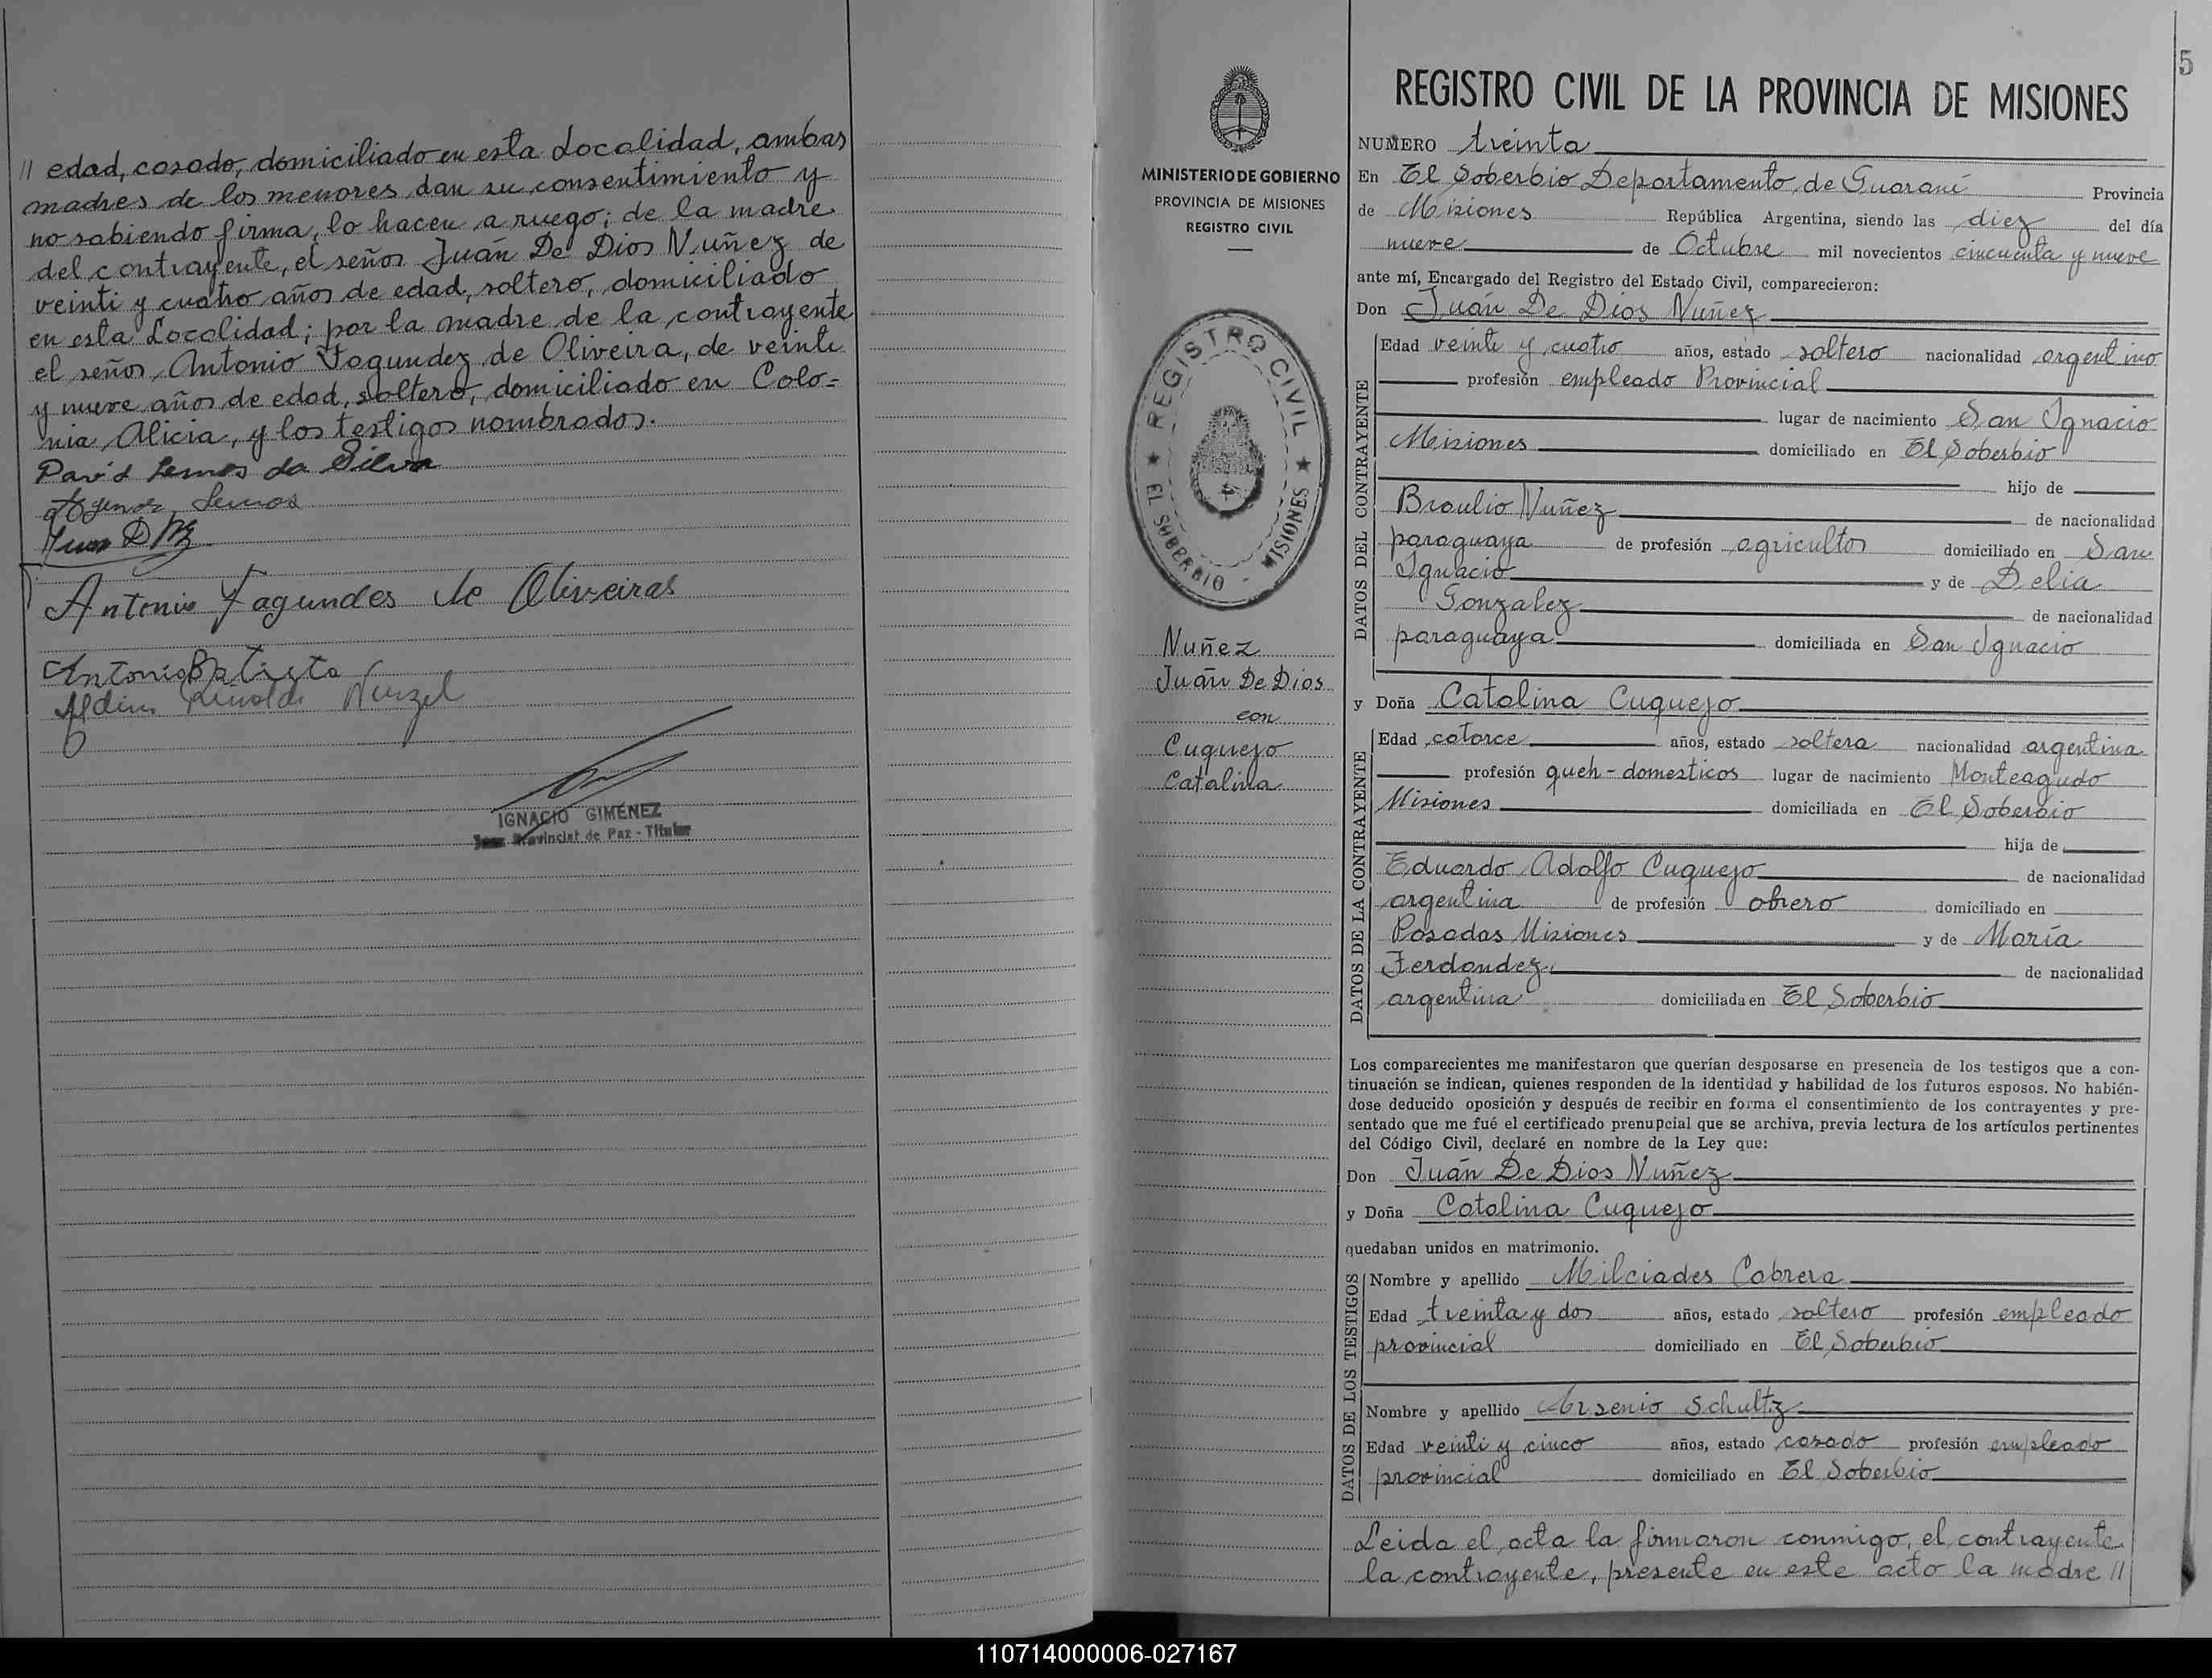 // edad, casado, domiciliado en esta Localidad, ambas
madres de los menores dan su consentimiento y
no sabiendo firma, lo hacen a ruego; de la madre
del contrayente, el señor Juán De Dios Nuñez de
veinti y cuatro años de edad, soltero, domiciliado
en esta Localidad; por la madre de la contrayente
el señor Antonio Fagundez de Oliveira, de veinti
y nueve años de edad, soltero, domiciliado en Colo=
nia Alicia, y los testigos nombrados.
David Lemos da Silva
Agenor Lemos
Juan D
Antonio Fagundes de Oliveiras
Antonio Batista
IGNACIO GIMENEZ
Juez Provincial de Paz - Titular
5
MINISTERIO DE GOBIERNO
PROVINCIA DE MISIONES
REGISTRO CIVIL
REGISTRO CIVIL
EL SOBERBIO - MISIONES
Nuñez
Juán De Dios
con
Cuquejo
Catalina
REGISTRO CIVIL DE LA PROVINCIA DE MISIONES
NUMERO treinta
En El Soberbio Departamento de Guaraní Provincia
de Misiones República Argentina, siendo las diez del día
nueve de Octubre mil novecientos cincuenta y nueve
ante mí, Encargado del Registro del Estado Civil, comparecieron:
Don Juán De Dios Nuñez
DATOS DEL CONTRAYENTE
Edad veinti y cuatro años, estado soltero nacionalidad argentino
profesión empleado Provincial
lugar de nacimiento San Ignacio
Misiones domiciliado en El Soberbio
hijo de
Braulio Nuñez de nacionalidad
paraguaya de profesión agricultor domiciliado en San
Ignacio y de Delia
Gonzalez de nacionalidad
paraguaya domiciliada en San Ignacio
y Doña Catalina Cuquejo
DATOS DE LA CONTRAYENTE
Edad catorce años, estado soltera nacionalidad argentina
profesión queh-domesticos lugar de nacimiento Monteagudo
Misiones domiciliada en El Soberbio
hija de
Eduardo Adolfo Cuquejo de nacionalidad
argentina de profesión obrero domiciliado en
Posadas Misiones y de María
Ferdandez de nacionalidad
argentina domiciliada en El Soberbio
Los comparecientes me manifestaron que querían desposarse en presencia de los testigos que a con-
tinuación se indican, quienes responden de la identidad y habilidad de los futuros esposos. No habién-
dose deducido oposición y después de recibir en forma el consentimiento de los contrayentes y pre-
sentado que me fué el certificado prenupcial que se archiva, previa lectura de los artículos pertinentes
del Código Civil, declaré en nombre de la Ley que:
Don Juán De Dios Nuñez
y Doña Catalina Cuquejo
quedaban unidos en matrimonio.
DATOS DE LOS TESTIGOS
Nombre y apellido Milciades Cabrera
Edad treinta y dos años, estado soltero profesión empleado
provincial domiciliado en El Soberbio
Nombre y apellido Arsenio Schultz
Edad veinti y cinco años, estado casado profesión empleado
provincial domiciliado en El Soberbio
Leida el acta la firmaron conmigo, el contrayente
la contrayente, presente en este acto la madre //
110714000006-027167